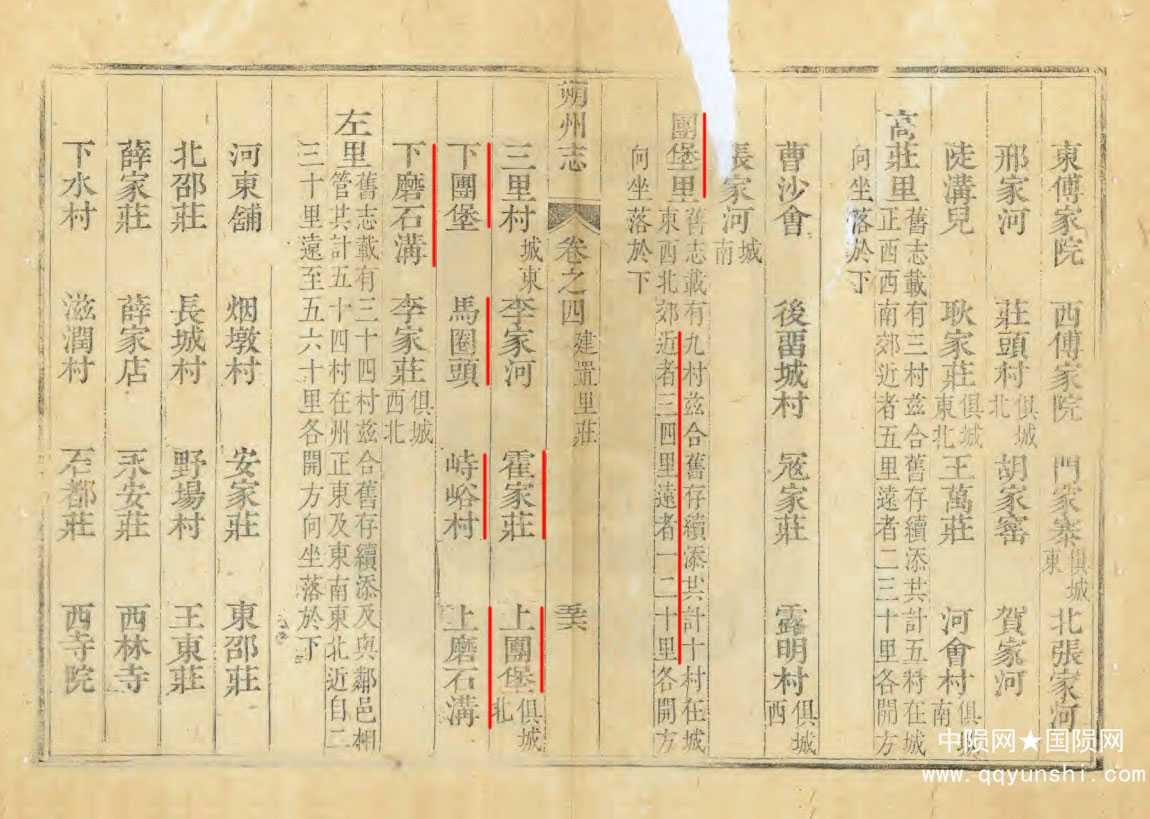 東傅家院 西傅家院 門家寨 俱城東 北張家河
邢家河 莊頭村 俱城北 胡家窰 賀家河
陡溝兒 耿家莊 俱城東北 王萬莊 河會村 俱城南
高莊里 舊志載有三村茲合舊存續添共計五村在城
正西西南郊近者五里遠者二三十里各開方
向坐落於下
曹沙會 後畱城村 寇家莊 露明村 俱城西
張家河 城南
團堡里 舊志載有九村茲合舊存續添共計十村在城
東西北郊近者三四里遠者一二十里各開方
向坐落於下
朔州志 卷之四 建置里莊
三里村 城東 李家河 霍家莊 上團堡 俱城北
下團堡 馬圈頭 峙峪村 上磨石溝
下磨石溝 李家莊 俱城西北
左里 舊志載有三十四村茲合舊存續添及與鄰邑相
管共計五十四村在州正東及東南東北近自二
三十里遠至五六十里各開方向坐落於下
河東舖 烟墩村 安家莊 東邵莊
北邵莊 長城村 野場村 王東莊
薛家莊 薛家店 永安莊 西林寺
下水村 滋潤村 石都莊 西寺院
中陨网★国陨网
www.qqyunshi.com